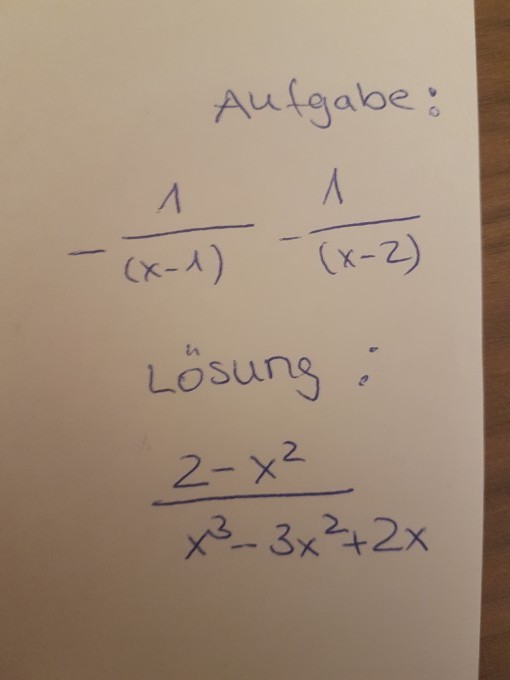 Aufgabe:
- 1/(x-1) - 1/(x-2)
Lösung:
2-x²/x³-3x²+2x